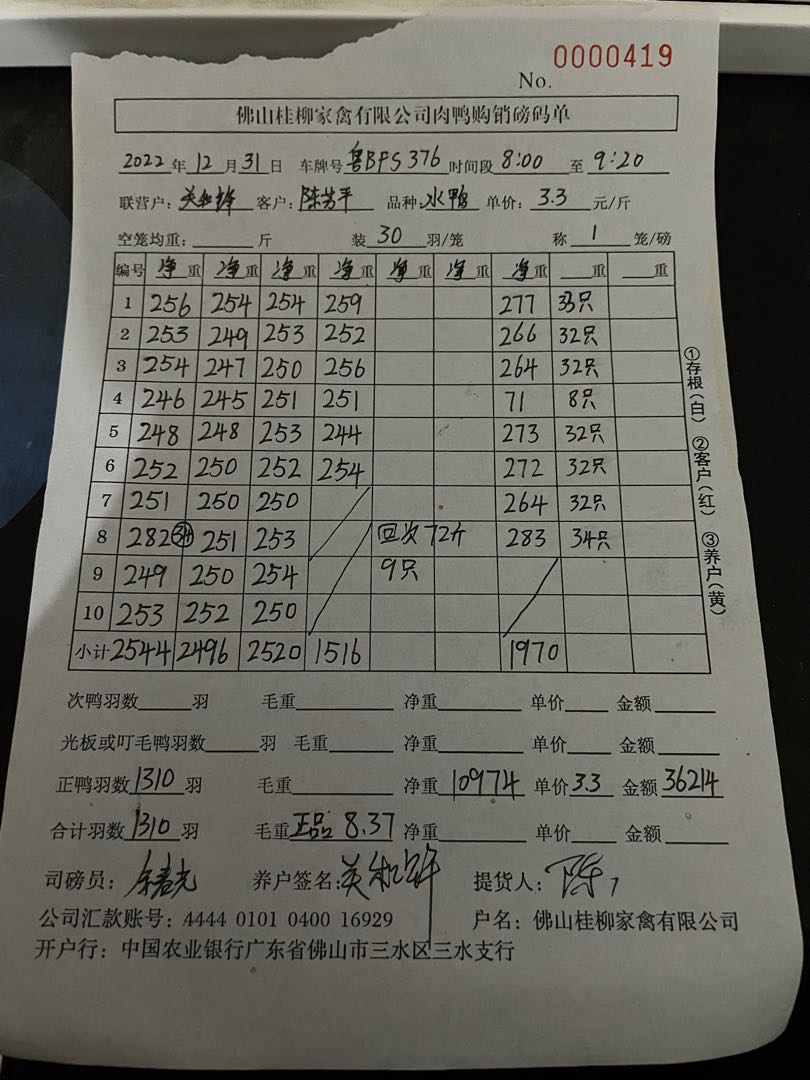 0000419
No.
佛山桂柳家禽有限公司肉鸭购销磅码单
2022 年 12 月 31 日 车牌号 鲁BFS376 时间段 8:00 至 9:20
联营户: 客户: 陈芳平 品种: 水鸭 单价: 3.3 元/斤
空笼均重: 斤 装 30 羽/笼 称 1 笼/磅
编号 净重 净重 净重 净重 净重 净重 净重 重 重
1 256 254 254 259 277 33只
2 253 249 253 252 266 32只
3 254 247 250 256 264 32只
4 246 245 251 251 71 8只
5 248 248 253 244 273 32只
6 252 250 252 254 272 32只
7 251 250 250 264 32只
8 282 34 251 253 回次 72斤 283 34只
9 249 250 254 9只
10 253 252 250
小计 2544 2496 2520 1516 1970
①存根(白) ②客户(红) ③养户(黄)
次鸭羽数 羽 毛重 净重 单价 金额
光板或叮毛鸭羽数 羽 毛重 净重 单价 金额
正鸭羽数 1310 羽 毛重 净重 10974 单价 3.3 金额 36214
合计羽数 1310 羽 毛重 正品 8.37 净重 单价 金额
司磅员: 养户签名: 提货人: 陈
公司汇款账号: 4444 0101 0400 16929 户名: 佛山桂柳家禽有限公司
开户行: 中国农业银行广东省佛山市三水区三水支行